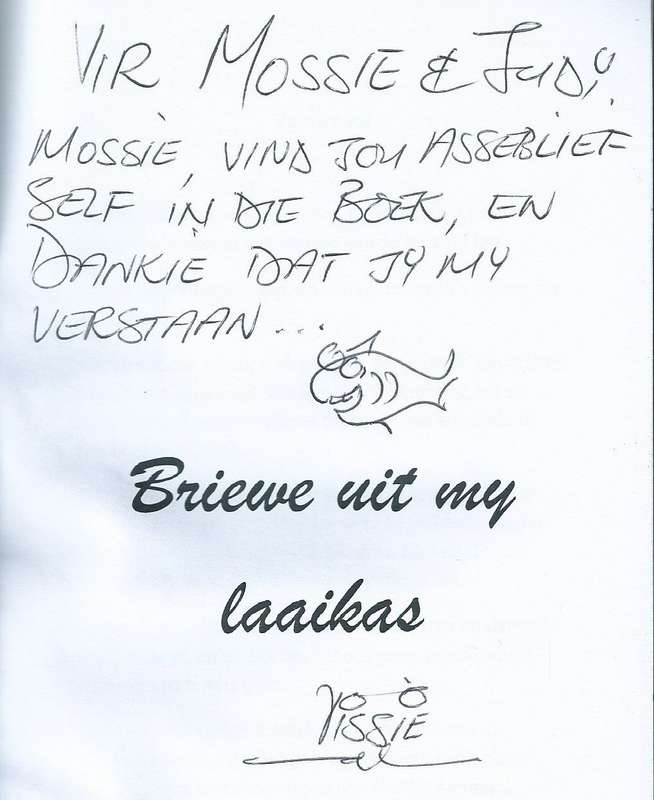 VIR MOSSIE & JUDY.
MOSSIE, VIND JOU ASSEBLIEF
SELF IN DIE BOEK, EN
DANKIE DAT JY MY
VERSTAAN...
Briewe uit my
laaikas
VISSIE